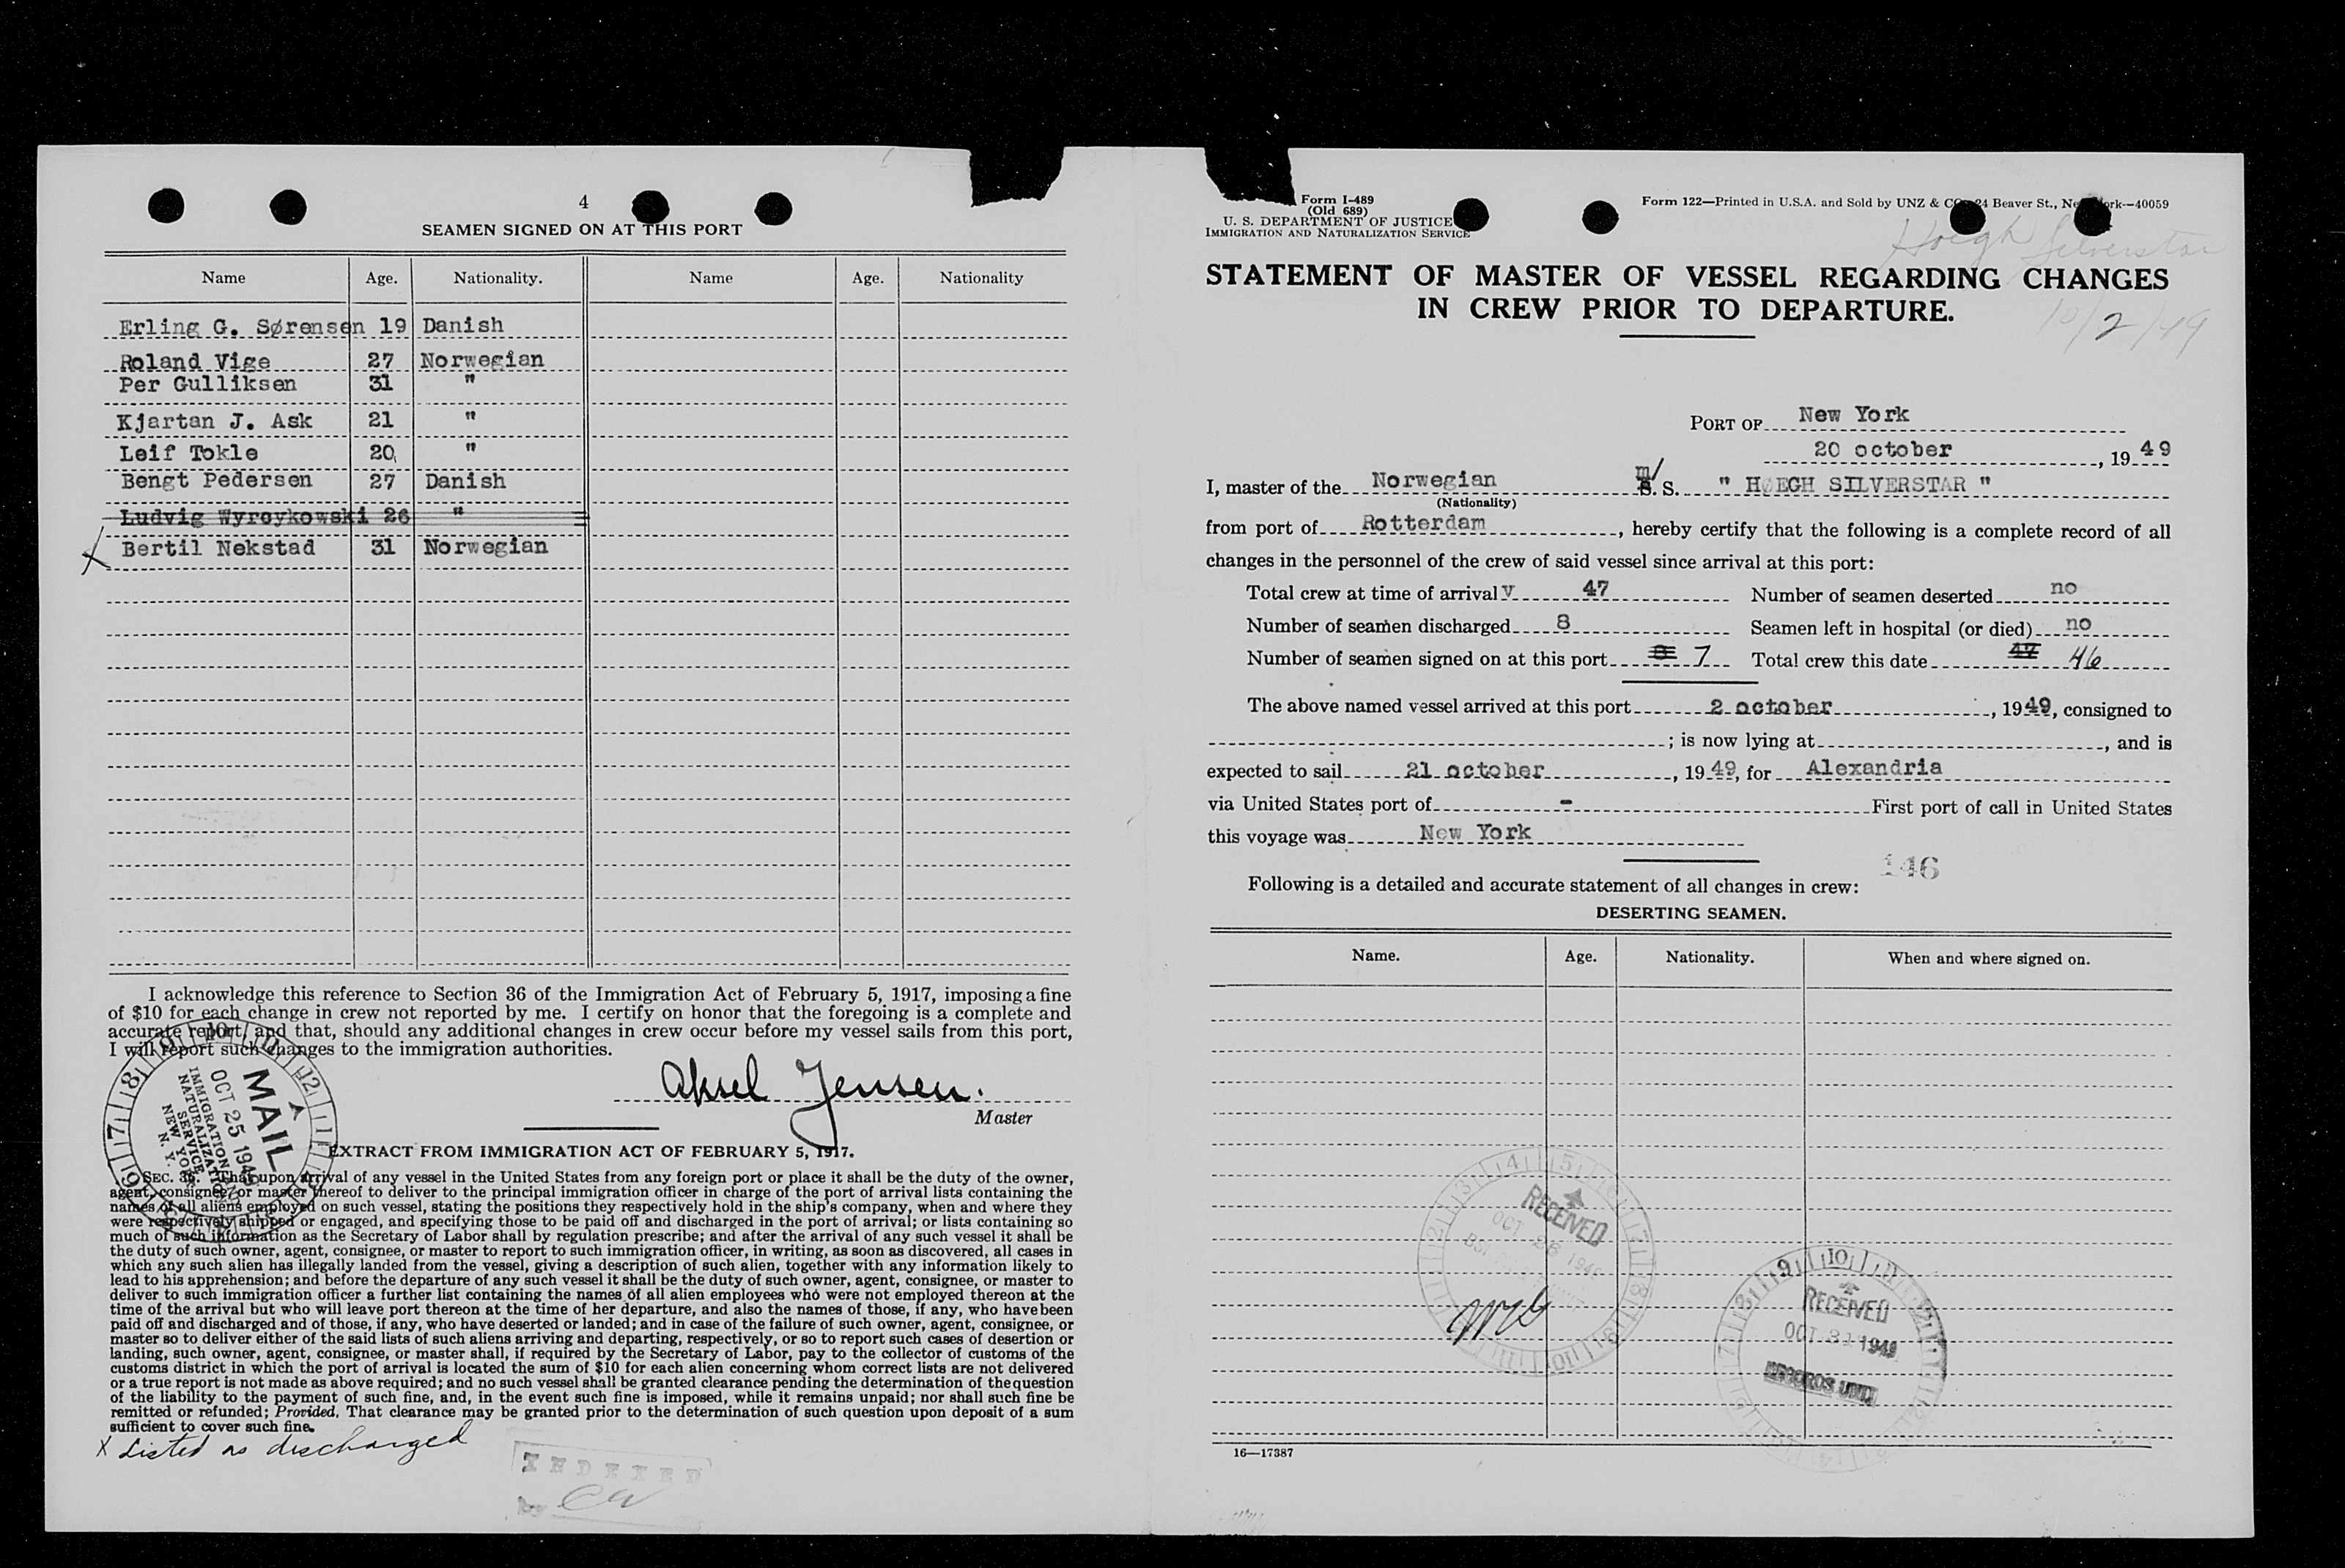 4
SEAMEN SIGNED ON AT THIS PORT
Name Age. Nationality. Name Age. Nationality
Erling G. Sørensen 19 Danish
Roland Vige 27 Norwegian
Per Gulliksen 31 "
Kjartan J. Ask 21 "
Leif Tokle 20 "
Bengt Pedersen 27 Danish
Ludvig Wyroykowski 26 "
X Bertil Nekstad 31 Norwegian
I acknowledge this reference to Section 36 of the Immigration Act of February 5, 1917, imposing a fine
of $10 for each change in crew not reported by me. I certify on honor that the foregoing is a complete and
accurate report, and that, should any additional changes in crew occur before my vessel sails from this port,
I will report such changes to the immigration authorities.
Aksel Jensen.
Master
MAIL
OCT 25 1949
IMMIGRATION AND
NATURALIZATION
SERVICE
NEW YORK
N. Y.
EXTRACT FROM IMMIGRATION ACT OF FEBRUARY 5, 1917.
SEC. 36. That upon arrival of any vessel in the United States from any foreign port or place it shall be the duty of the owner,
agent, consignee, or master thereof to deliver to the principal immigration officer in charge of the port of arrival lists containing the
names of all aliens employed on such vessel, stating the positions they respectively hold in the ship's company, when and where they
were respectively shipped or engaged, and specifying those to be paid off and discharged in the port of arrival; or lists containing so
much of such information as the Secretary of Labor shall by regulation prescribe; and after the arrival of any such vessel it shall be
the duty of such owner, agent, consignee, or master to report to such immigration officer, in writing, as soon as discovered, all cases in
which any such alien has illegally landed from the vessel, giving a description of such alien, together with any information likely to
lead to his apprehension; and before the departure of any such vessel it shall be the duty of such owner, agent, consignee, or master to
deliver to such immigration officer a further list containing the names of all alien employees who were not employed thereon at the
time of the arrival but who will leave port thereon at the time of her departure, and also the names of those, if any, who have been
paid off and discharged and of those, if any, who have deserted or landed; and in case of the failure of such owner, agent, consignee, or
master so to deliver either of the said lists of such aliens arriving and departing, respectively, or so to report such cases of desertion or
landing, such owner, agent, consignee, or master shall, if required by the Secretary of Labor, pay to the collector of customs of the
customs district in which the port of arrival is located the sum of $10 for each alien concerning whom correct lists are not delivered
or a true report is not made as above required; and no such vessel shall be granted clearance pending the determination of the question
of the liability to the payment of such fine, and, in the event such fine is imposed, while it remains unpaid; nor shall such fine be
remitted or refunded; Provided, That clearance may be granted prior to the determination of such question upon deposit of a sum
sufficient to cover such fine.
X Listed as discharged
INDEXED
by
Form I-489
(Old 689)
U. S. DEPARTMENT OF JUSTICE
IMMIGRATION AND NATURALIZATION SERVICE
Form 122—Printed in U.S.A. and Sold by UNZ & CO., 24 Beaver St., New York—40059
Hoegh Silverstar
10/2/49
STATEMENT OF MASTER OF VESSEL REGARDING CHANGES
IN CREW PRIOR TO DEPARTURE.
PORT OF New York
20 october, 1949
I, master of the Norwegian m/S. S. " HØEGH SILVERSTAR "
(Nationality)
from port of Rotterdam, hereby certify that the following is a complete record of all
changes in the personnel of the crew of said vessel since arrival at this port:
Total crew at time of arrival V 47 Number of seamen deserted no
Number of seamen discharged 8 Seamen left in hospital (or died) no
Number of seamen signed on at this port 8 7 Total crew this date 47 46
The above named vessel arrived at this port 2 october, 1949, consigned to
; is now lying at , and is
expected to sail 21 october, 1949, for Alexandria
via United States port of - First port of call in United States
this voyage was New York
146
Following is a detailed and accurate statement of all changes in crew:
DESERTING SEAMEN.
Name. Age. Nationality. When and where signed on.
RECEIVED
OCT 26 1949
RECEIVED
OCT 31 1949
RECORDS UNIT
16—17387